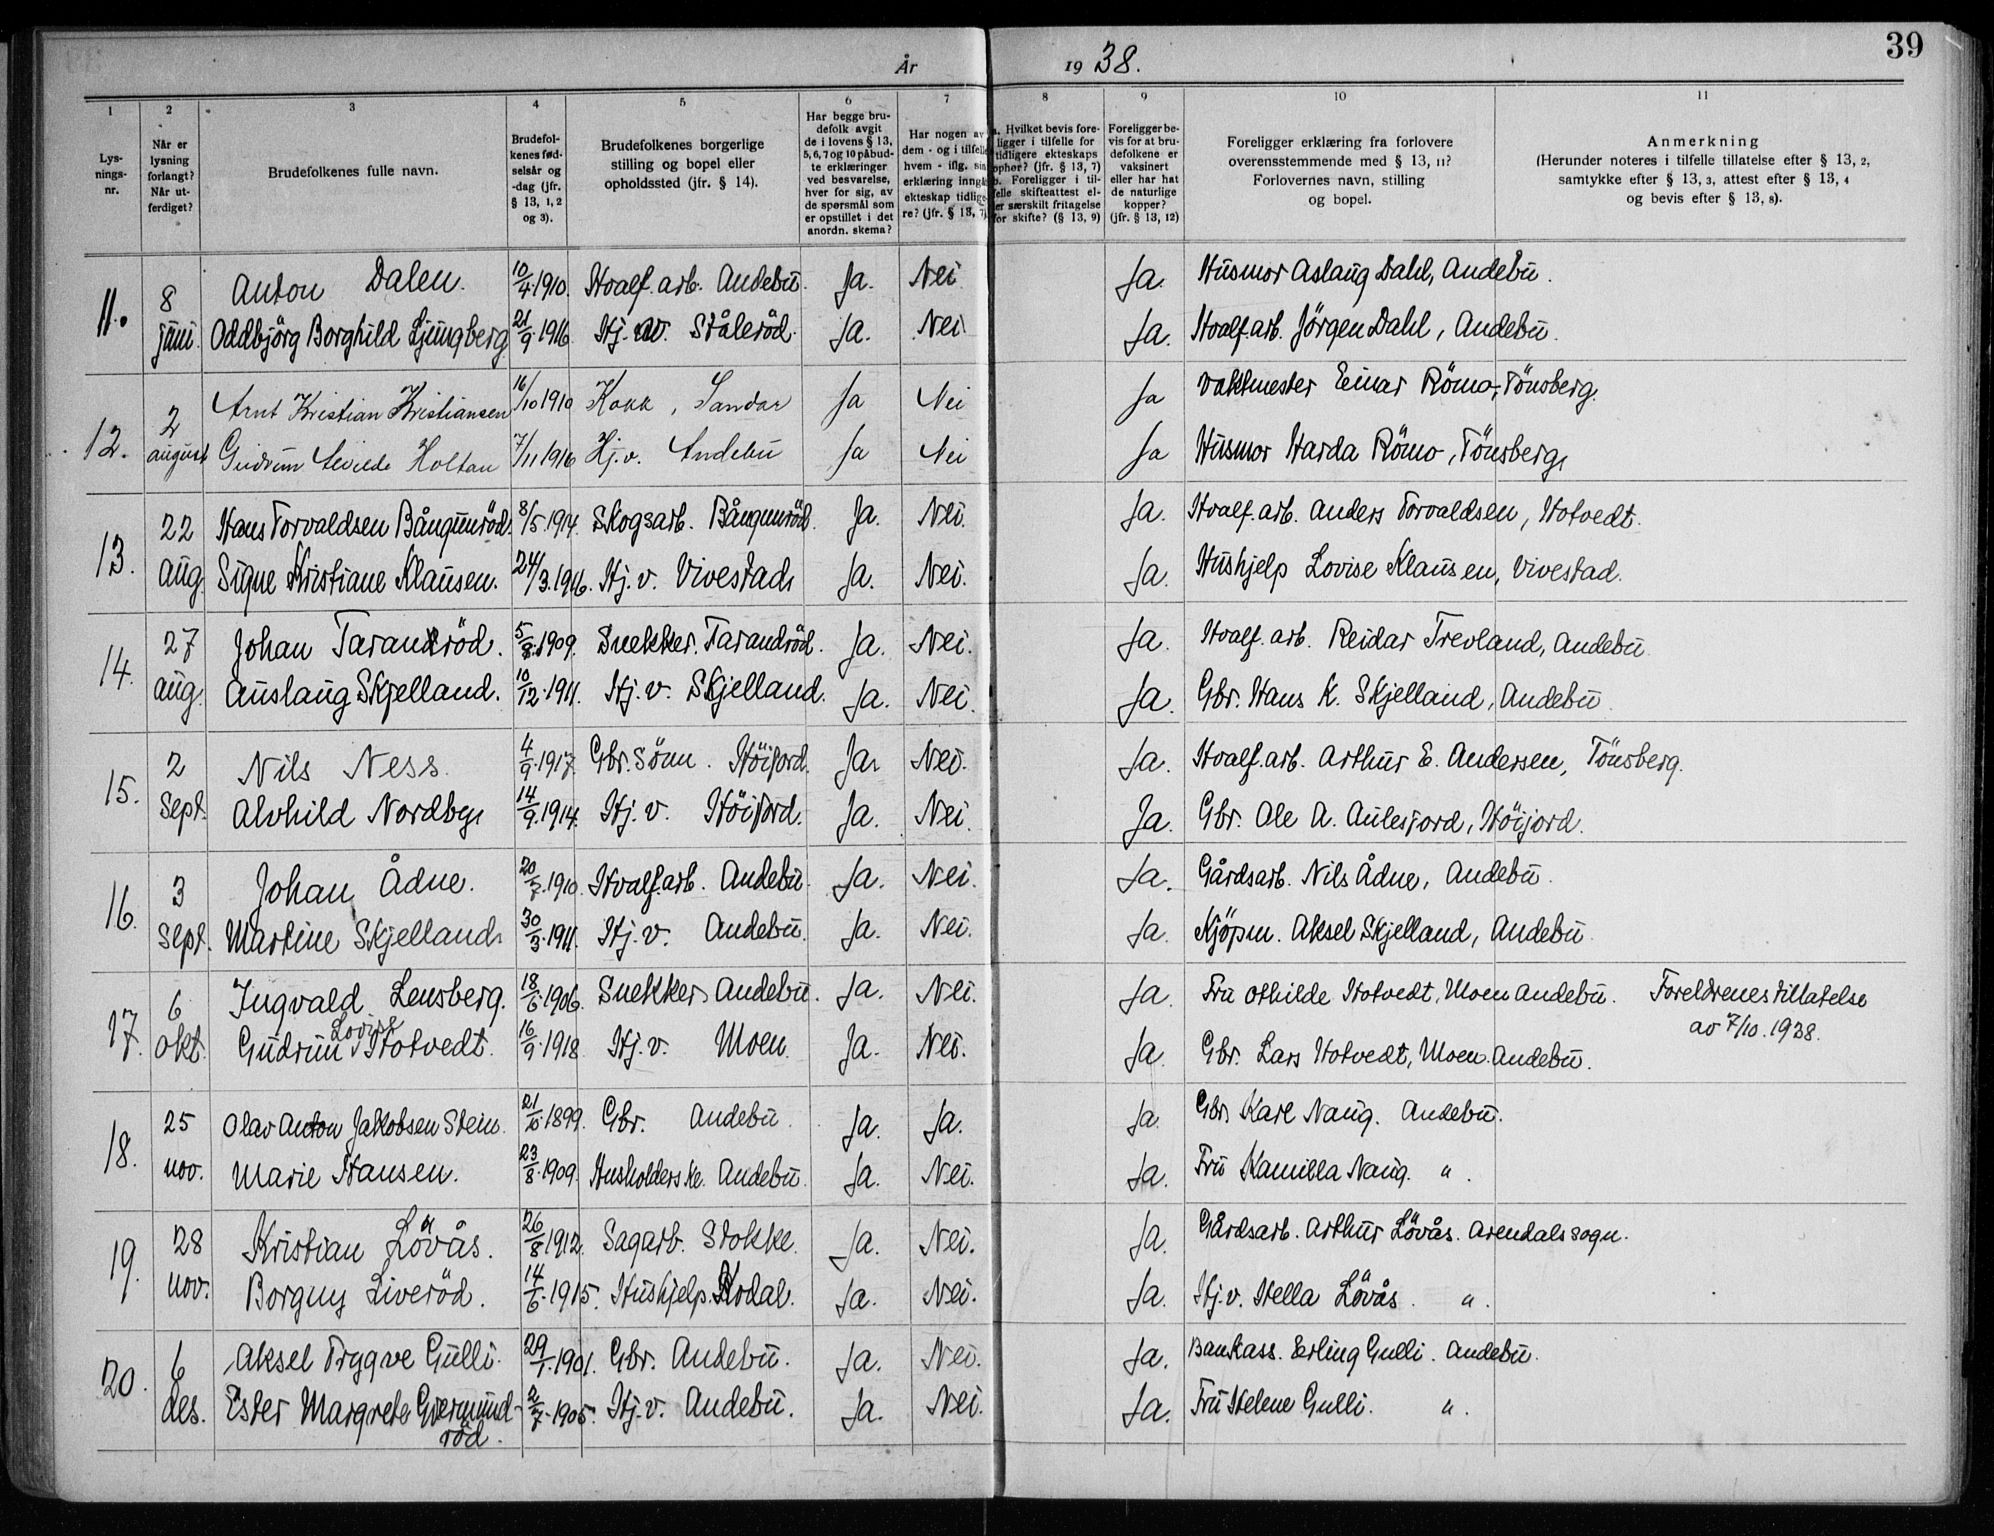 39
År 1938.
1 2 3 4 5 6 7 8 9 10 11
Lysningsnr.
Når er lysning forlangt? Når utferdiget?
Brudefolkenes fulle navn.
Brudefolkenes fødselsår og -dag (jfr. § 13, 1, 2 og 3).
Brudefolkenes borgerlige stilling og bopel eller opholdssted (jfr. § 14).
Har begge brudefolk avgit de i lovens § 13, 5, 6, 7 og 10 påbudte erklæringer ved besvarelse, hver for sig, av de spørsmål som er opstillet i det anordn. skema?
Har nogen av dem - og i tilfelle hvem - iflg. sin erklæring inngått ekteskap tidligere? (jfr. § 13, 7)
a. Hvilket bevis foreligger i tilfelle for tidligere ekteskaps ophør? (jfr. § 13, 7) b. Foreligger i tilfelle skifteattest eller særskilt fritagelse for skifte? (§ 13, 9)
Foreligger bevis for at brudefolkene er vaksinert eller har hat de naturlige kopper? (jfr. § 13, 12)
Foreligger erklæring fra forlovere overensstemmende med § 13, 11? Forlovernes navn, stilling og bopel.
Anmerkning (Herunder noteres i tilfelle tillatelse efter § 13, 2, samtykke efter § 13, 3, attest efter § 13, 4 og bevis efter § 13, 8).
11. 8 Anton Dalen. 10/4.1910. Hvalf.arb. Andebu. Ja. Nei Ja. Husmor Aslaug Dahl, Andebu.
juni. Oddbjörg Borghild Ljungberg 21/9.1916. Hj. v. Ståleröd. Ja. Nei Ja. Hvalf.arb. Jörgen Dahl, Andebu.
12. 2 Arnt Kristian Kristiansen 16/10 1910 Kokk, Sandar Ja Nei Ja Vaktmester Einar Römo, Tönsberg.
august Gudrun Alvilde Holtan 7/11 1916 Hj.v. Andebu Ja Nei Ja Husmor Harda Römo, Tönsberg
13. 22 Hans Torvaldsen Bångunröd. 8/5.1914. Skogsarb. Bångunröd. Ja. Nei. Ja. Hvalf.arb. Anders Torvaldsen, Hotvedt.
aug. Signe Kristiane Klausen. 24/3.1916. Hj. v. Vivestad Ja. Nei. Ja. Hushjelp Lovise Klausen, Vivestad.
14. 27 Johan Taranröd. 5/8.1909. Snekker. Tarandröd. Ja. Nei. Ja. Hvalf. arb. Reidar Trevland, Andebu
aug. Auslaug Skjelland. 10/12.1911. Hj. v. Skjelland. Ja. Nei. Ja. Gbr. Hans K. Skjelland, Andebu
15. 2 Nils Ness. 4/9.1917. Gbr.sønn. Höijord. Ja. Nei. Ja. Hvalf.arb. Arthur E. Andersen, Tönsberg.
sept. Alvhild Nordby 14/9.1914. Hj. v. Höijord. Ja. Nei. Ja. Gbr. Ole A. Aulesjord, Höijord.
16. 3 Johan Ådne. 20/7.1910. Hvalf.arb. Andebu. Ja. Nei. Ja. Gårdsarb. Nils Ådne, Andebu.
sept. Martine Skjelland. 30/3.1911. Hj. v. Andebu. Ja. Nei. Ja. Kjöpm. Aksel Skjelland, Andebu
17. 6 Ingvald Lensberg. 18/6.1906. Snekker Andebu. Ja. Nei. Ja. Fru Othilde Hotvedt, Moen Andebu. Foreldrenes tillatelse
av 7/10.1938.
okt. Gudrun Lovise Hotvedt. 16/9.1918 Hj. v. Moen. Ja. Nei. Ja. Gbr. Lars Hotvedt, Moen. Andebu.
18. 25 Olav Anton Jakobsen Stein. 21/10.1899. Gbr. Andebu. Ja. Ja. Ja. Gbr. Karl Naug. Andebu.
nov. Marie Hansen. 23/8.1909. Husholderske. Andebu. Ja. Nei. Ja. Fru Kamilla Naug. " .
19. 28 Kristian Lövås. 26/8 1912. Sagarb. Stokke. Ja. Nei. Ja. Gårdsarb. Arthur Lövås. Arendals sogn.
nov. Borgny Liveröd. 14/6.1915. Hushjelp. Kodal. Ja. Nei. Ja. Hj.v. Hella Lövås. " .
20. 6 Aksel Trygve Gulli. 29/1.1901. Gbr. Andebu. Ja. Nei. Ja. Bankkass. Erling Gulli. Andebu.
des. Ester Margrete Gvermundröd. 2/7.1905. Hj.v. Andebu. Ja. Nei. Ja. Fru Helene Gulli. " .